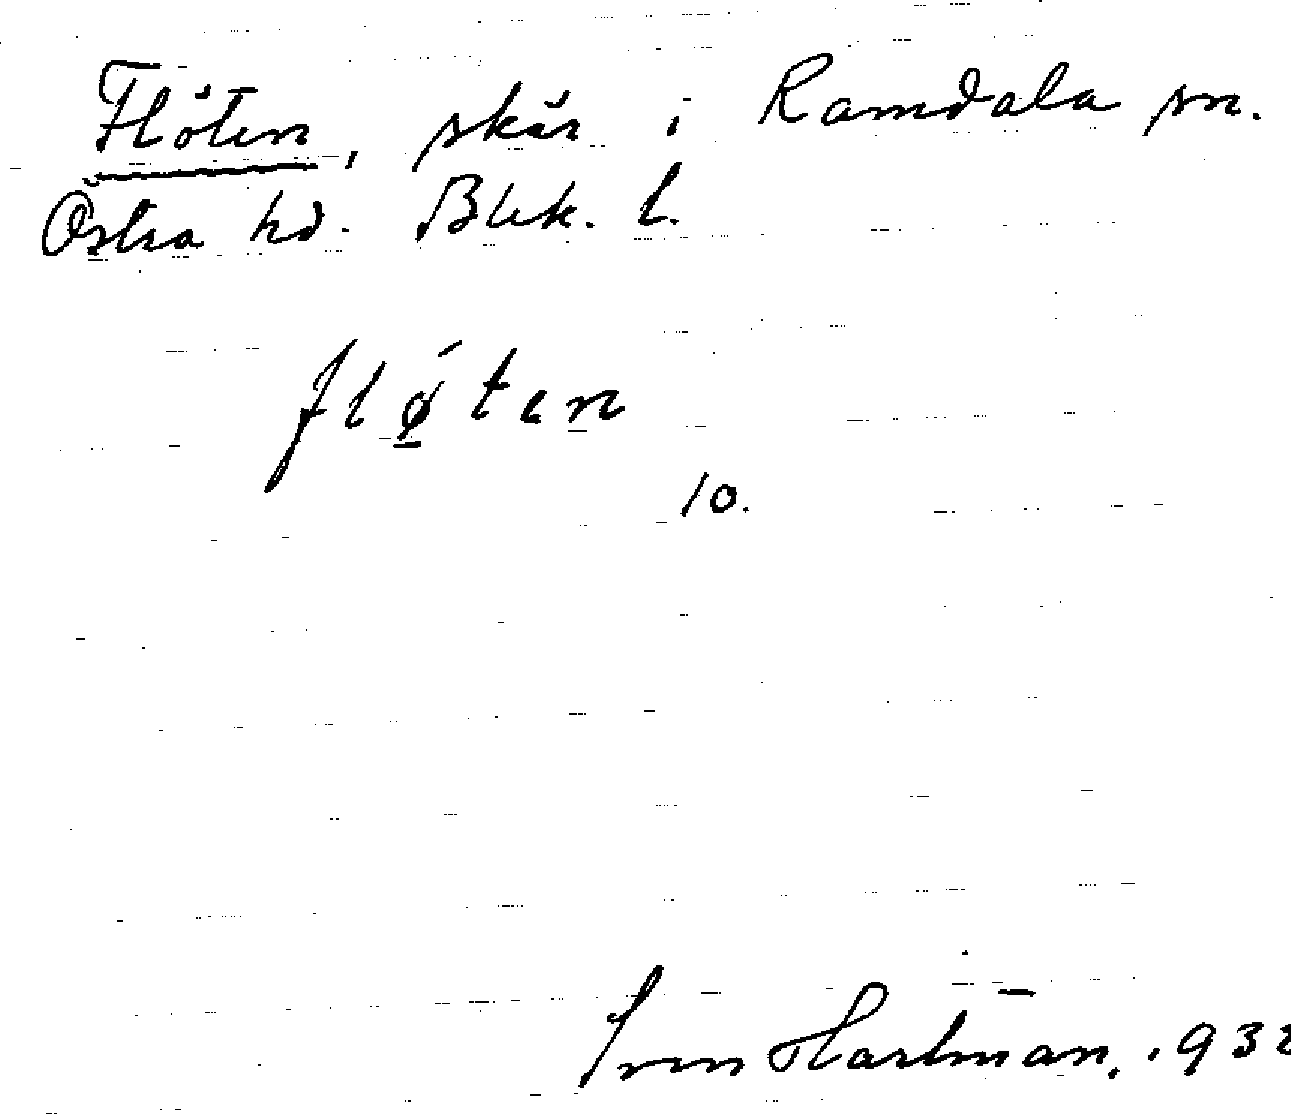 Flöten, skär i Ramdala sn.
Östra hd. Blek. l.
flø̀ten
10.
Sven Hartman. 1932